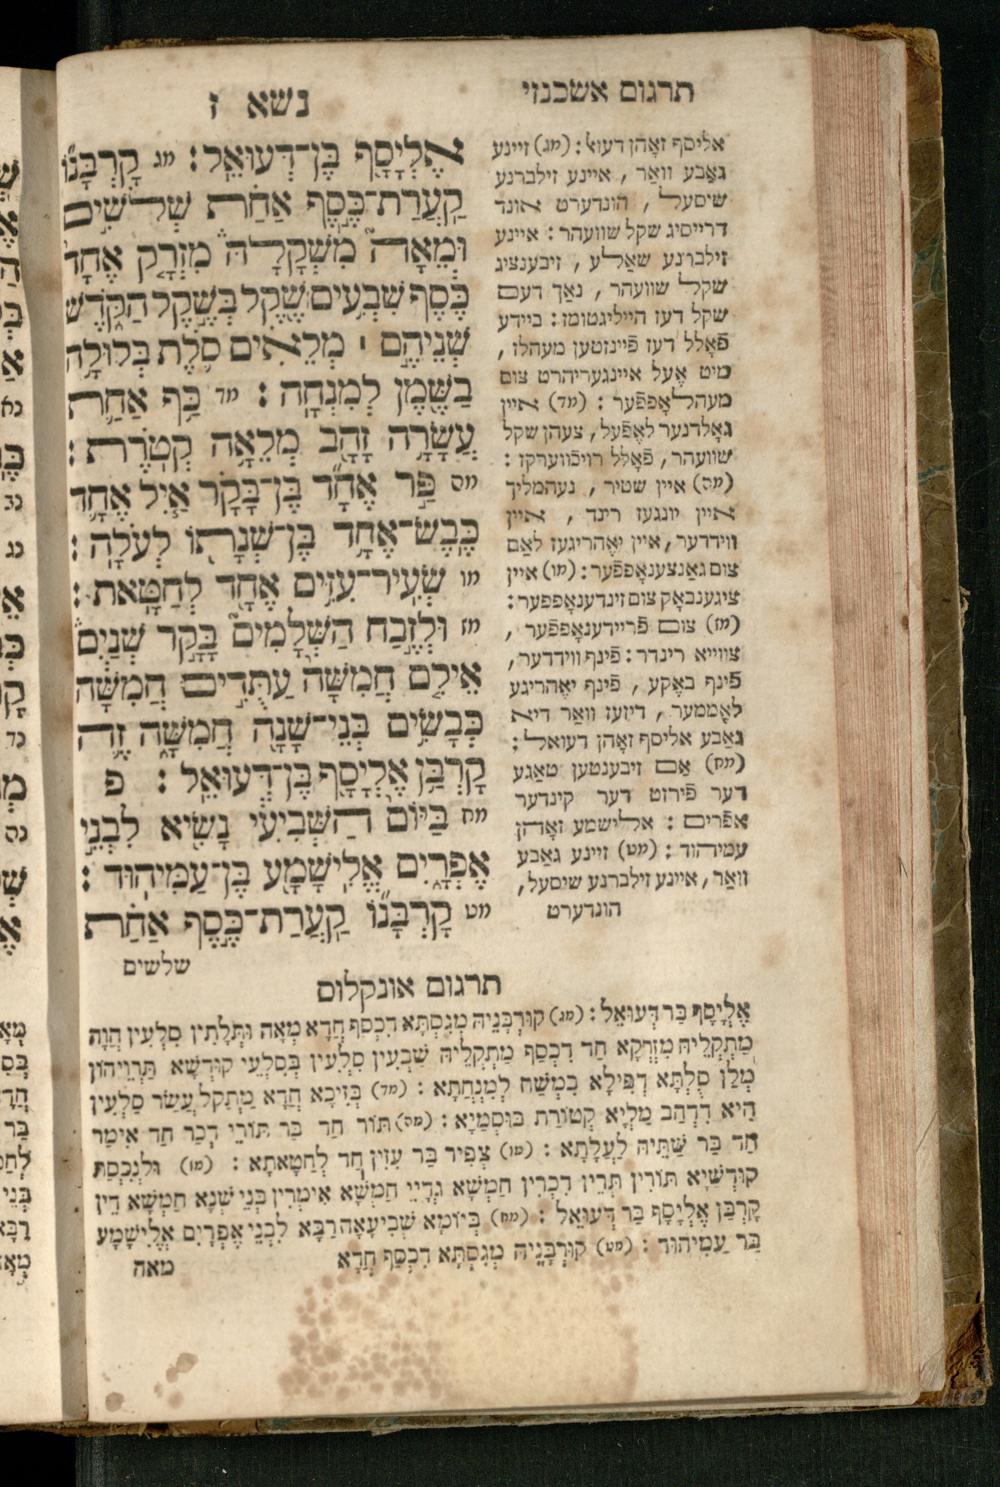 תרגום אשכנזי
נשא ז
אֶלְיָסָ֖ף בֶּן־דְּעוּאֵֽל׃ מג קָרְבָּנ֞וֹ
קַֽעֲרַת־כֶּ֣סֶף אַחַ֗ת שְׁלֹשִׁ֣ים
וּמֵאָה֮ מִשְׁקָלָהּ֒ מִזְרָ֤ק אֶחָד֙
כֶּ֔סֶף שִׁבְעִ֥ים שֶׁ֖קֶל בְּשֶׁ֣קֶל הַקֹּ֑דֶשׁ
שְׁנֵיהֶ֣ם ׀ מְלֵאִ֗ים סֹ֛לֶת בְּלוּלָ֥ה
בַשֶּׁ֖מֶן לְמִנְחָֽה׃ מד כַּ֥ף אַחַ֛ת
עֲשָׂרָ֥ה זָהָ֖ב מְלֵאָ֥ה קְטֹֽרֶת׃
מה פַּ֣ר אֶחָ֞ד בֶּן־בָּקָ֗ר אַ֧יִל אֶחָ֛ד
כֶּֽבֶשׂ־אֶחָ֥ד בֶּן־שְׁנָת֖וֹ לְעֹלָֽה׃
מו שְׂעִיר־עִזִּ֥ים אֶחָ֖ד לְחַטָּֽאת׃
מז וּלְזֶ֣בַח הַשְּׁלָמִים֮ בָּקָ֣ר שְׁנַ֒יִם֒
אֵילִ֤ם חֲמִשָּׁה֙ עַתֻּדִ֣ים חֲמִשָּׁ֔ה
כְּבָשִׂ֥ים בְּנֵי־שָׁנָ֖ה חֲמִשָּׁ֑ה זֶ֛ה
קָרְבַּ֥ן אֶלְיָסָ֖ף בֶּן־דְּעוּאֵֽל׃ פ
מח בַּיּוֹם֙ הַשְּׁבִיעִ֔י נָשִׂ֖יא לִבְנֵ֣י
אֶפְרָ֑יִם אֱלִֽישָׁמָ֖ע בֶּן־עַמִּיהֽוּד׃
מט קָרְבָּנ֞וֹ קַֽעֲרַת־כֶּ֣סֶף אַחַ֗ת
שלשים
אליסף זאָהן דעואל׃ (מג) זיינע
גאַבע וואַר, איינע זילברנע
שיסעל, הונדערט אונד
דרייסיג שקל שוועהר׃ איינע
זילברנע שאַלע, זיבענציג
שקל שוועהר, נאַך דעם
שקל דעז הייליגטומז׃ ביידע
פֿאָלל דעז פֿיינזטען מעהלז,
מיט אֶעל איינגעריהרט צום
מעהלאָפּפֿער׃ (מד) איין
גאָלדנער לאֶפֿעל, צעהן שקל
שוועהר, פֿאָלל רויכֿווערקז׃
(מה) איין שטיר, נעהמליך
איין יונגעז רינד, איין
ווידדער, איין יאֶהריגעז לאַם
צום גאַנצענאָפּפֿער׃ (מו) איין
ציגענבאָק צום זינדענאָפּפֿער׃
(מז) צום פֿריידענאָפּפֿער,
צווייא רינדר׃ פֿינף ווידדער,
פֿינף באֶקע, פֿינף יאֶהריגע
לאֶממער, דיזעז וואַר דיא
גאַבע אליסף זאָהן דעואל׃
(מח) אַם זיבענטען טאַגע
דער פֿירזט דער קינדער
אפרים׃ אלישמע זאָהן
עמיהוד׃ (מט) זיינע גאַבע
וואַר, איינע זילברנע שיסעל,
הונדערט
תרגום אונקלוס
אֶלְיָסָף בַּר דְּעוּאֵל׃ (מג) קוּרְבָּנֵיהּ מְגִסְתָּא דִכְסַף חֲדָא מְאָה וּתְלָתִין סִלְעִין הֲוָה
מַתְקְלֵיהּ מִזְרְקָא חַד דִּכְסַף מַתְקְלֵיהּ שַׁבְעִין סִלְעִין בְּסִלְעֵי קוּדְשָׁא תַּרְוֵיהוֹן
מְלַן סֻלְתָּא דְּפִילָא בִמְשַׁח לְמִנְחֲתָא׃ (מד) בָּזִיכָא חֲדָא מַתְקַל עֲשַׂר סִלְעִין
הִיא דִדְהַב מַלְיָא קְטוֹרֶת בּוּסְמַיָּא׃ (מה) תּוֹר חַד בַּר תּוֹרֵי דְּכַר חַד אִימַר
חַד בַּר שַׁתֵּיהּ לַעֲלָתָא׃ (מו) צְפִיר בַּר עִזִּין חַד לְחַטָּאתָא׃ (מז) וּלְנִכְסַת
קוּדְשַׁיָּא תּוֹרִין תְּרֵין דִּכְרִין חַמְשָׁא גְּדָיֵי חַמְשָׁא אִימְרִין בְּנֵי שְׁנָא חַמְשָׁא דֵּין
קָרְבַּן אֶלְיָסָף בַּר דְּעוּאֵל׃ (מח) בְּיוֹמָא שְׁבִיעָאָה רַבָּא לִבְנֵי אֶפְרָיִם אֱלִישָׁמָע
בַּר עַמִּיהוּד׃ (מט) קוּרְבָּנֵיהּ מְגִסְתָּא דִכְסַף חֲדָא
מאה